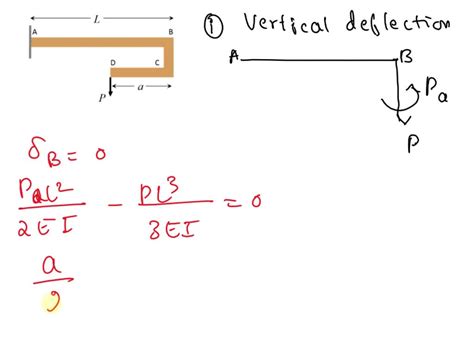 L
A
B
D
C
a
P
① Vertical deflection
A
B
Pa
P
δB = 0
PaL²/2EI - PL³/3EI = 0
a/2